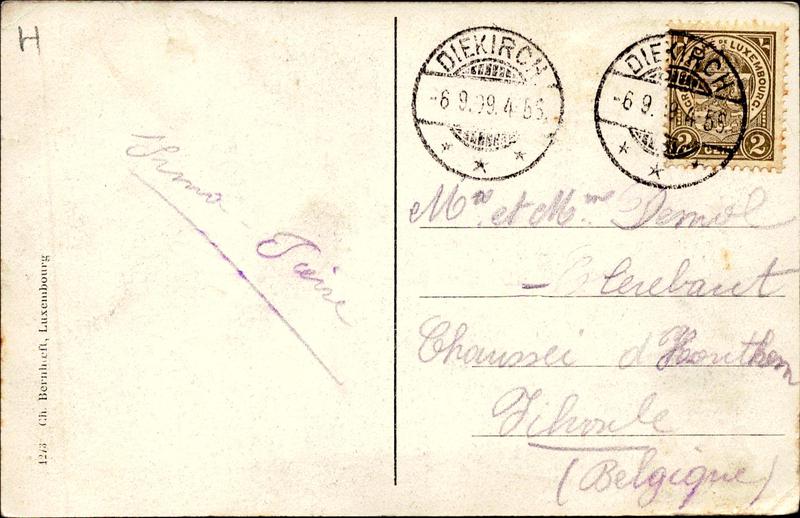 H
DIEKIRCH
-6 9.09.4-5S.
DIEKIRCH
-6 9. 9.4-5S.
DE LUXEMBOURG
2 2
Irma
1273 Ch. Bernhoeft, Luxembourg
Mr. et Mme Demol
- Clerebaut
Chaussei d'Houthem
Vilvorde
(Belgique)